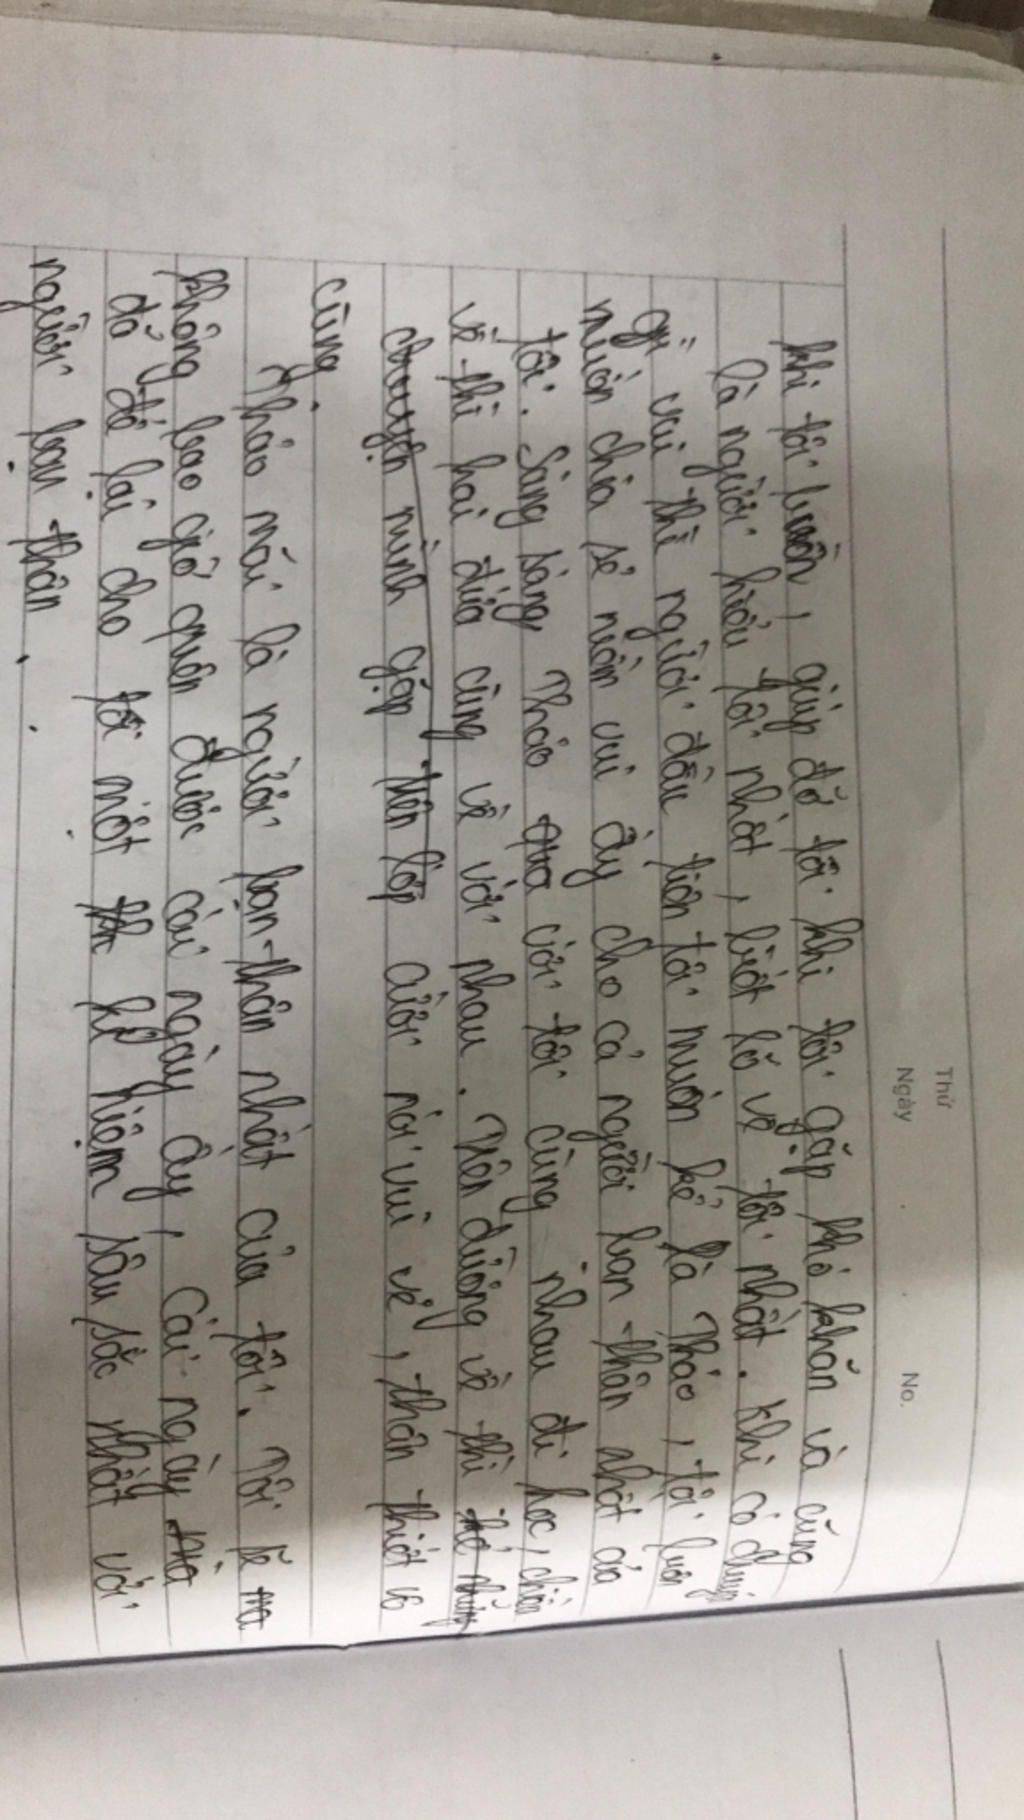 Thứ
Ngày No.
khi tôi buồn, giúp đỡ tôi khi tôi gặp khó khăn và cũng
là người hiểu tôi nhất, biết rõ về tôi nhất. Khi có chuyện
gì vui thì người đầu tiên tôi muốn kể là Thảo, tôi luôn
muốn chia sẻ niềm vui ấy cho cả người bạn thân nhất của
tôi. Sáng sáng Thảo qua với tôi cùng nhau đi học, chiều
về thì hai đứa cùng về với nhau. Trên đường về thì kể những
chuyện mình gặp trên lớp cười nói vui vẻ, thân thiết vô
cùng.
Thảo mãi là người bạn thân nhất của tôi. Tôi sẽ
không bao giờ quên được cái ngày ấy, Cái ngày mà
đã để lại cho tôi một kỉ niệm sâu sắc nhất với
người bạn thân.